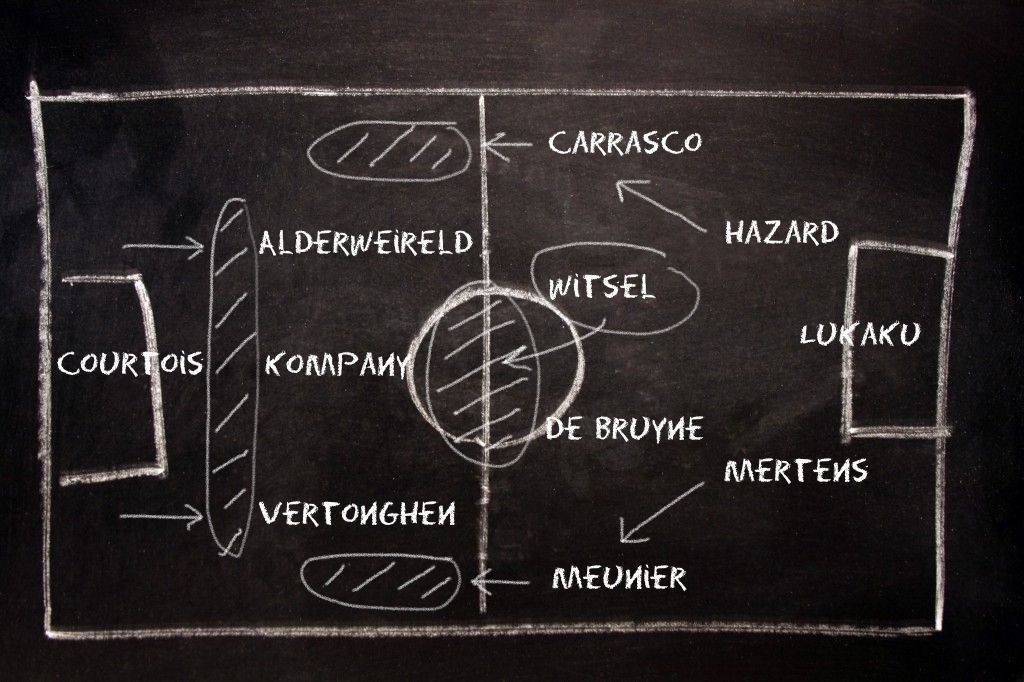 CARRASCO
HAZARD
ALDERWEIRELD
WITSEL
LUKAKU
COURTOIS
KOMPANY
DE BRUYNE
MERTENS
VERTONGHEN
MEUNIER